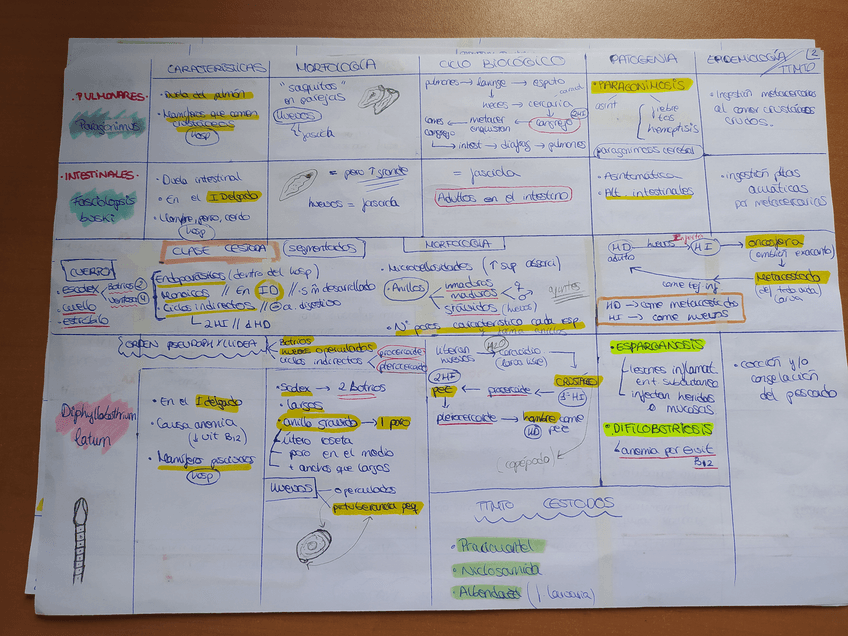 2
CARACTERÍSTICAS
MORFOLOGÍA
CICLO BIOLÓGICO
PATOGENIA
EPIDEMIOLOGÍA
TTMTO
· PULMONARES
Paragonimus
· Duela del pulmón
· Mamíferos que comen
crustáceos
hosp
"saquitos"
en parejas
HUEVOS
fasciola
pulmones → laringe → esputo
heces → cercaria
2HI
cangrejo
metacer
enquistan
comes
cangrejo
→ intest → diafrag → pulmones
· PARAGONIMOSIS
asint
fiebre
tos
hemoptisis
paragonimosis cerebral
· Ingestión metacercarias
al comer crustáceos
crudos.
· INTESTINALES
Fasciolopsis
buski
· Duela intestinal
· En el I Delgado
· Hombre, perro, cerdo
hosp
= pero ↑ grande
huevos = fasciola
= fasciola
Adultos en el intestino
· Asintomática
· Alt. intestinales
· ingestión pltas
acuáticas
metacercarias
CLASE CESTODA (segmentados)
MORFOLOGÍA
CUERPO
· Escólex
Botrios 2
Ventosas 4
· cuello
· estróbilo
· Endoparásitos (dentro del hosp)
· Monoicos // En ID //
· Ciclos indirectos // a. digestivo
↳ 2HI // 1 HD
· Microvellosidades (↑ sup absorci)
· Anillos
inmaduros
maduros
grávidos (huevos)
apuntes
· Nº poros característico cada esp
HD
adulto
huevos
HI
oncosfera
(embrión exacanto)
Metacestodo
larva
come tej inf
HD → come metacestodos
HI → come huevos
ORDEN PSEUDOPHYLLIDEA
Botrios
huevos operculados
ciclos indirectos
procercoide
plerocercoide
Diphyllobothrium
latum
· En el I delgado
· Causa anemia
(↓ vit B12)
· Mamífero piscívoros
hosp
· Scolex → 2 Botrios
· Largos
· Anillo grávido → 1 poro
útero roseta
poro en el medio
+ anchos que largos
HUEVOS
operculados
protuberancia peq
liberan
huevos
H2O
coracidio
(larva libre)
CRUSTÁCEO
1º HI
procercoide
2HI
pez
plerocercoide → hombre come
HD
pez
(copépodo)
· ESPARGANOSIS
lesiones inflamat.
en t subcutáneo
infectan heridas
o mucosas
· DIFILOBOTRIOSIS
↳ anemia por ↓ vit
B12
· cocción y/o
congelación del
pescado
TTMTO CESTODOS
· Praziquantel
· Niclosamida
· Albendazol